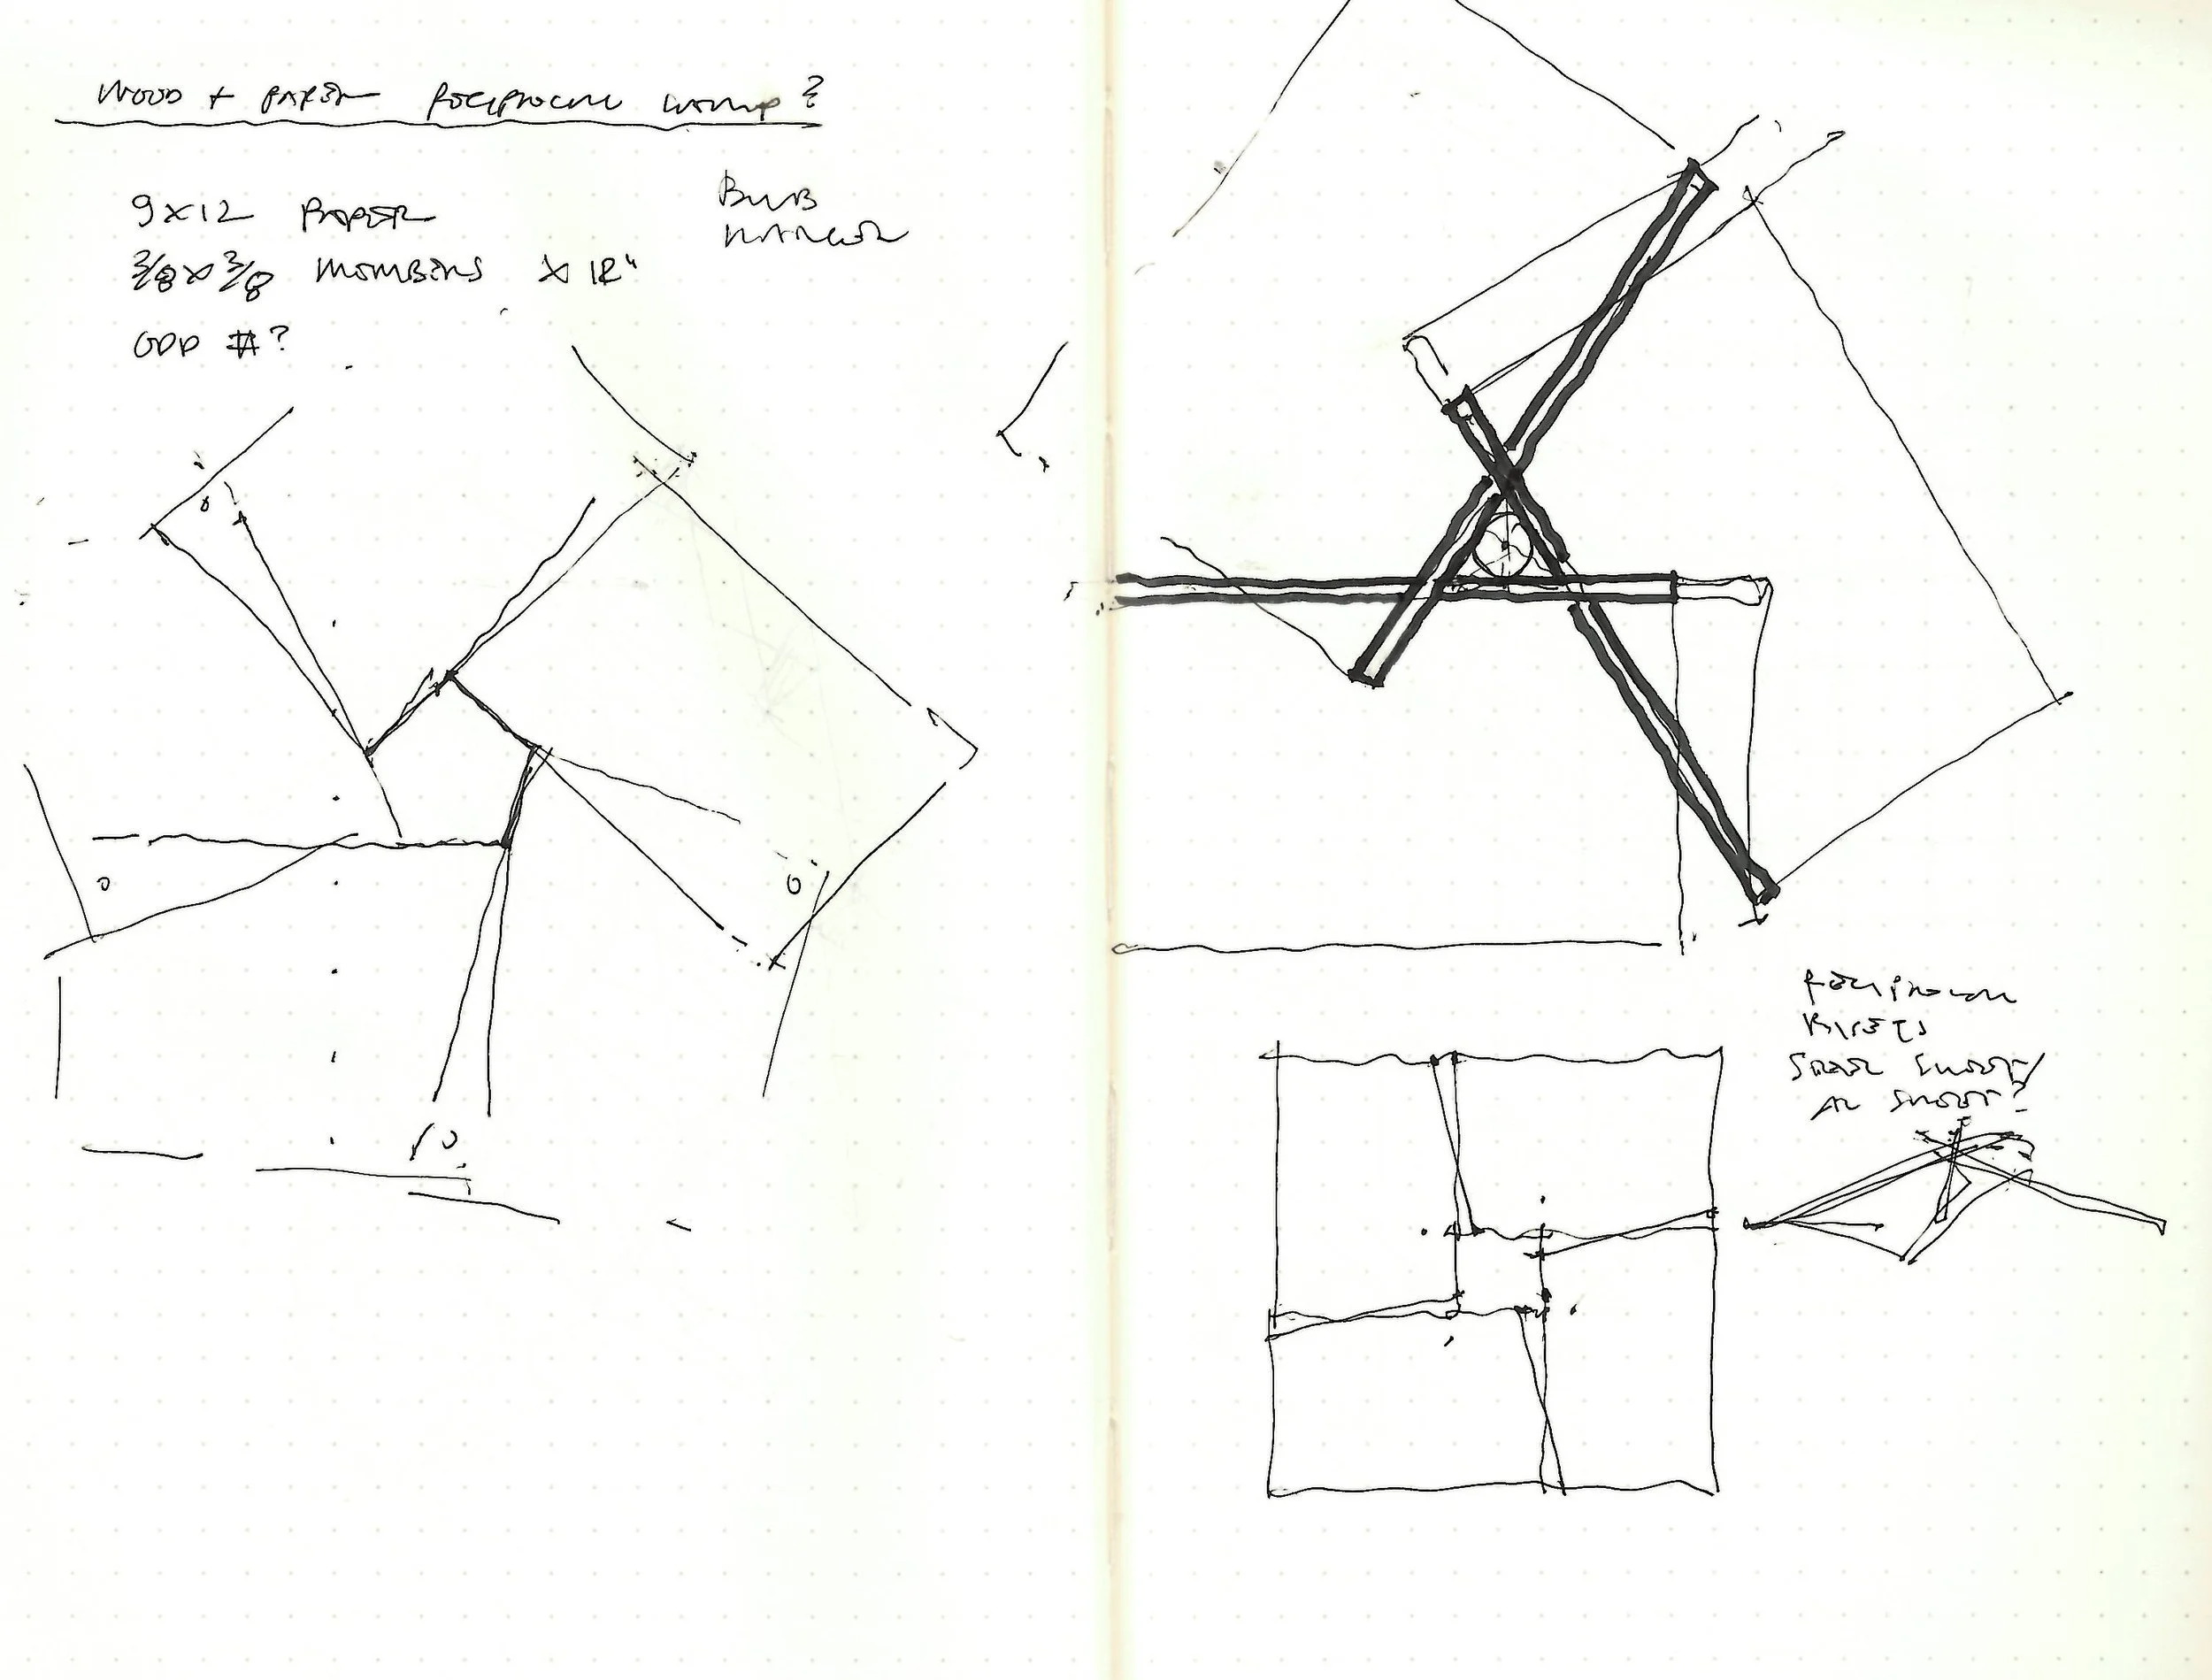 WOOD + PAPER RECIPROCAL LAMP?
9x12 PAPER
3/8 x 3/8 MEMBERS x 12"
ODD #?
BULB
HANGER
RECIPROCAL
STEEL SHEET/
AL SHEET?